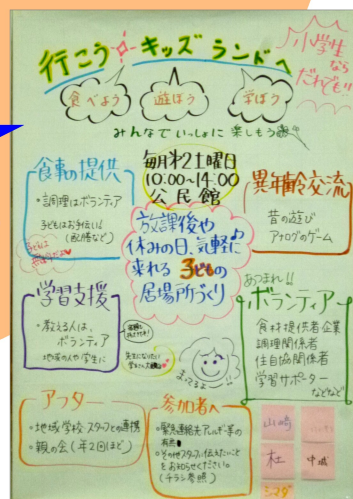 行こう キッズランドへ
小学生
なら
だれでも!!
食べよう
遊ぼう
学ぼう
みんなでいっしょに楽しもう
毎月第2土曜日
10:00~14:00
公民館
食事の提供
・調理はボランティア
子どもはお手伝い!!
(配膳など)
異年齢交流
昔の遊び
アナログのゲーム
放課後や
休みの日、気軽に
来れる 子どもの
居場所づくり
学習支援
・教える人は、
ボランティア
地域の人や学生に
まってるよ
あつまれ!!
ボランティア
食材提供者企業
調理関係者
住自協関係者
学習サポーター
などなど
アフター
・地域学校・スタッフとの連携
・親の会(年2回ほど)
参加者へ
・緊急連絡先アレルギー等の
有無
・その他スタッフに伝えたいこと
をお知らせください。
(チラシ参照)
山崎
杜
中城